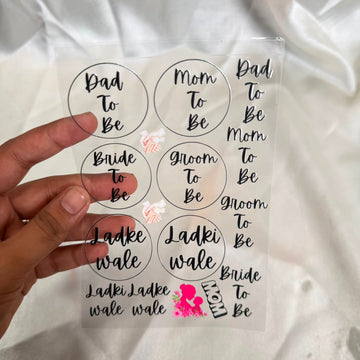 Dad
To
Be
Mom
To
Be
Dad
To
Be
Bride
To
Be
Groom
To
Be
Mom
To
Be
Ladke
wale
Ladki
wale
Groom
To
Be
Ladki
wale
Ladke
wale
MOM
Bride
To
Be